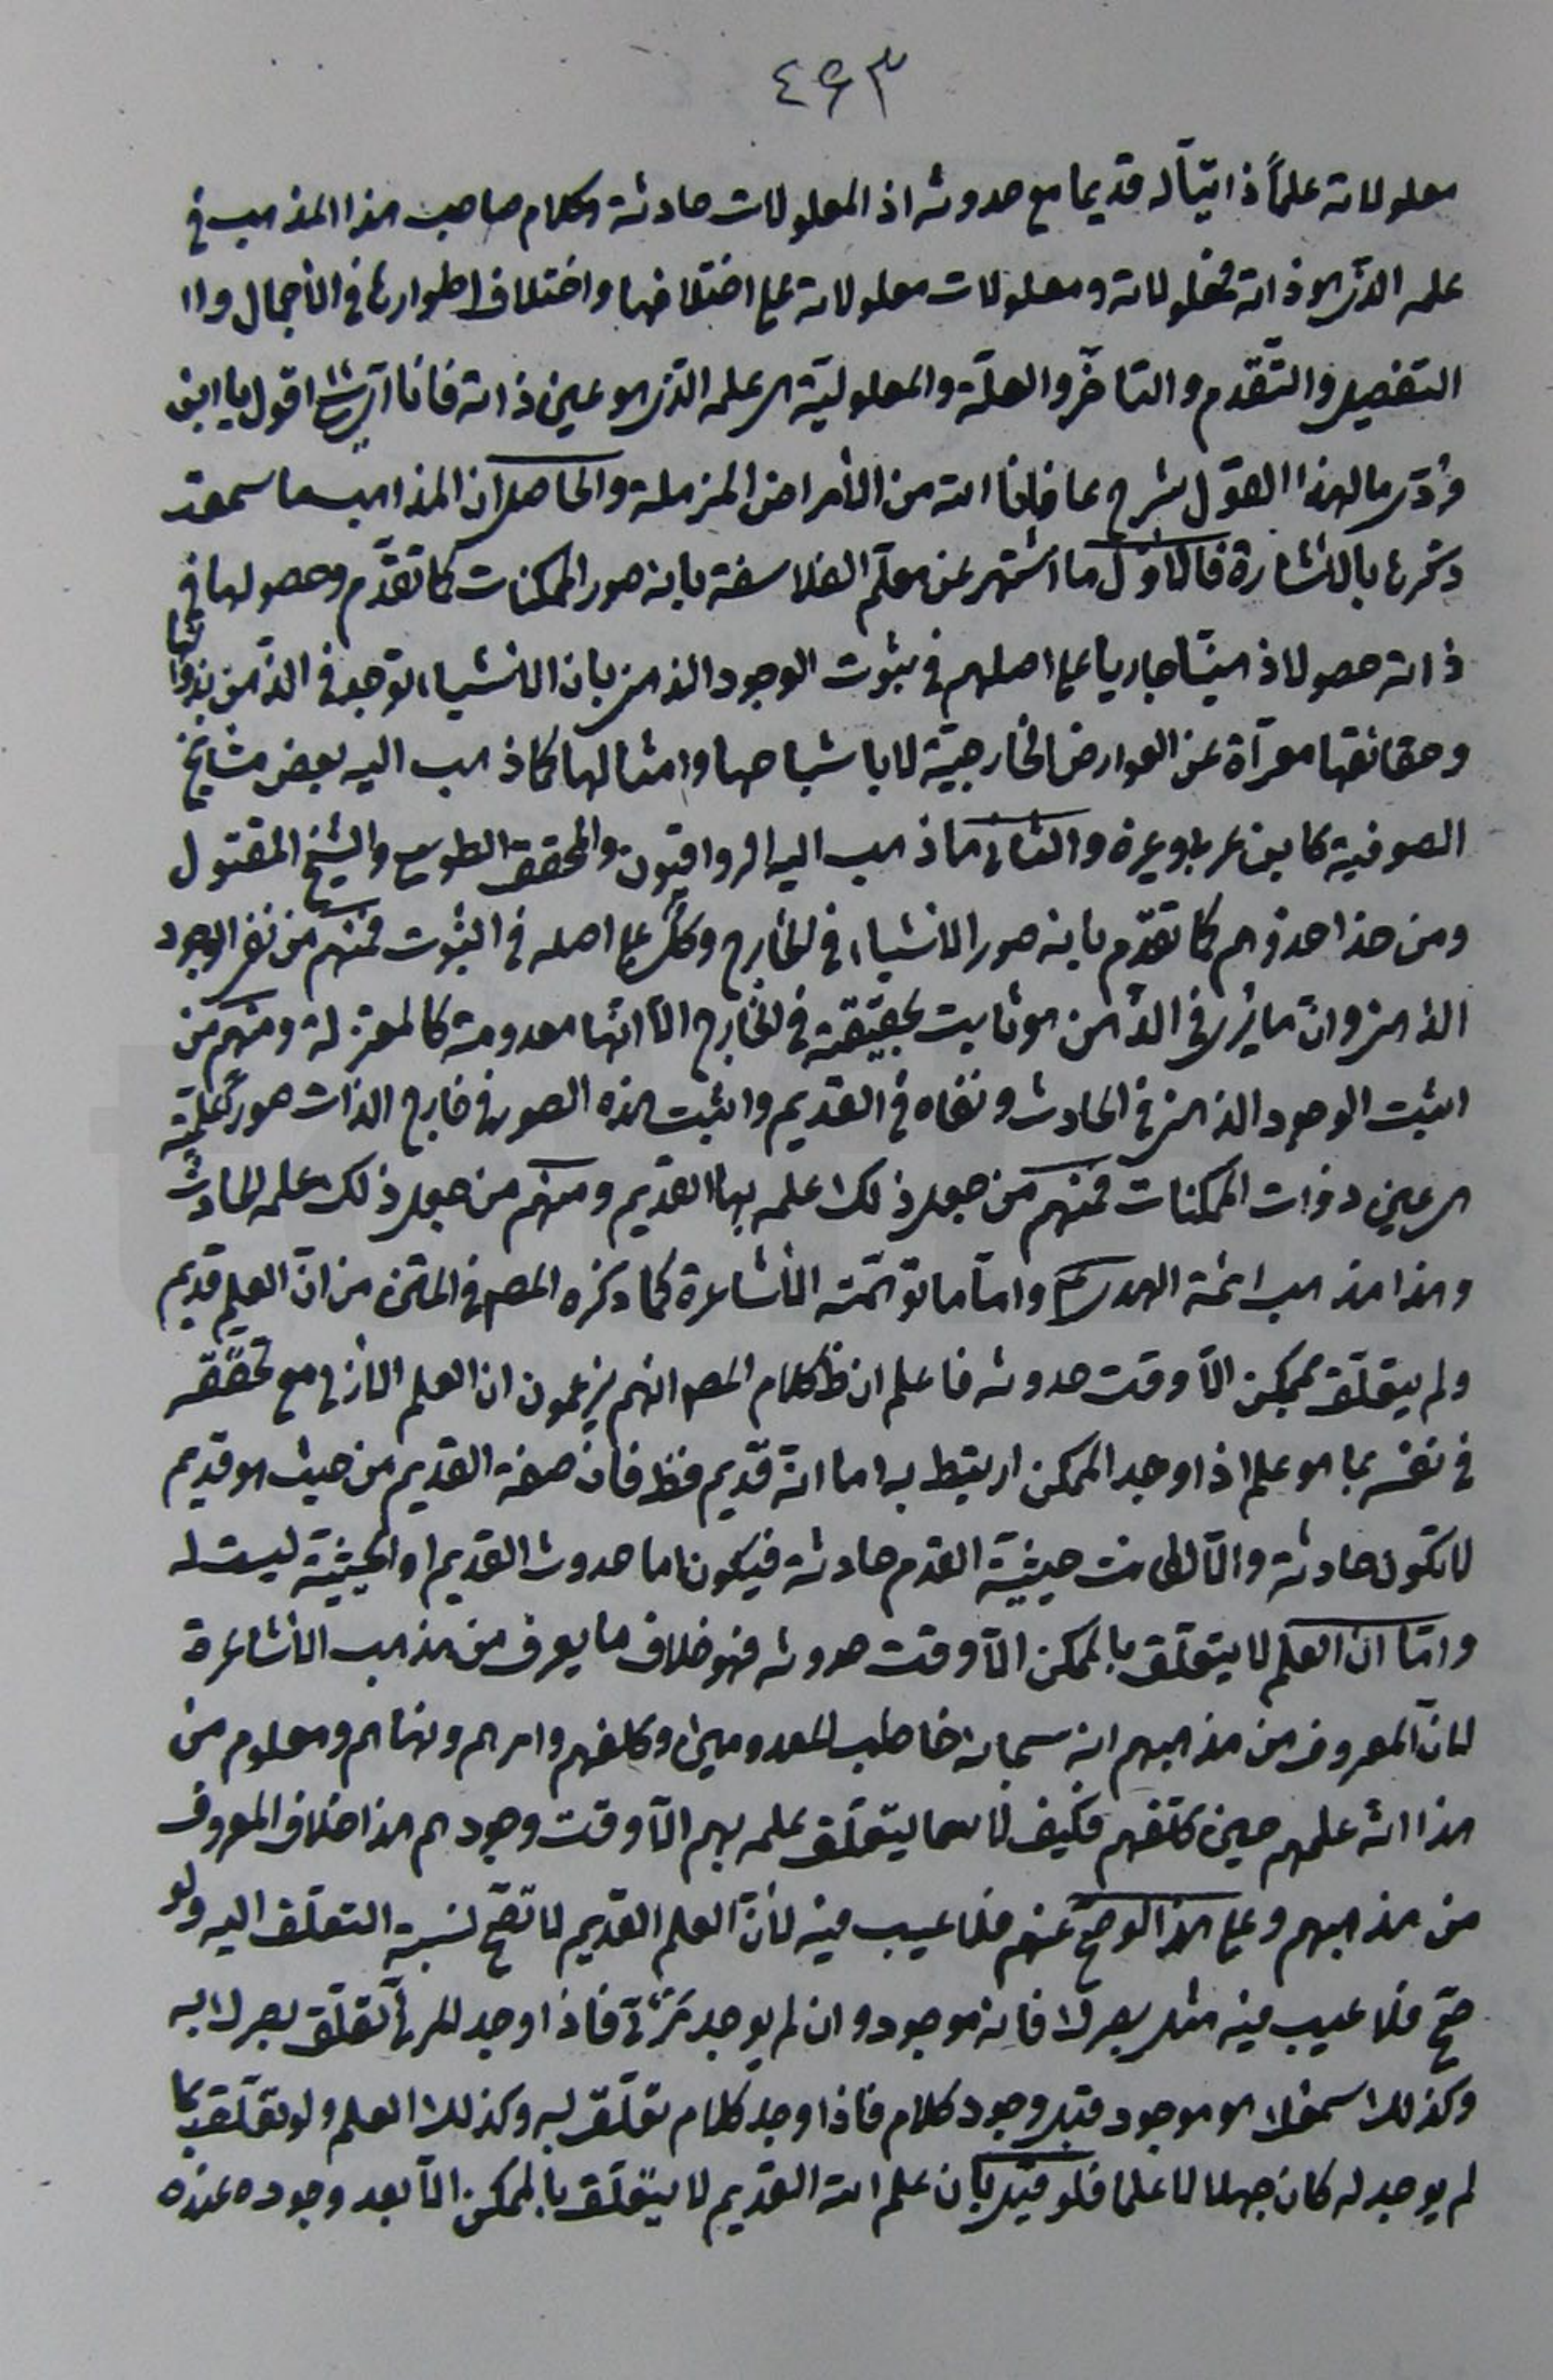 ٤٩٣
معلولاته علماً ذاتيّاً له قديما مع حدوثه اذ المعلولات حادثة وكلام صاحب هذا المذهب في
علمه الذى هو ذاته ومعلولاته ومعلولات معلولاته على اختلافها واختلاف اطوارها في الأجمال وا
التفصيل والتّقدم والتاخّر والعلّة والمعلوليّة هى علمه الذى هو عين ذاته فانا اقول يا ابن
ما لهذا القول شرح عافانا الله من الأمراض المزملة والحاصل ان المذاهب ما سمعت
ذكرها بالاشارة فالاوّل ما اشتهر عن معلّم الفلاسفة بانه صور الممكنات كما تقدّم وحصولها في
ذاته حصولا ذهنيّا جاريا على اصلهم في ثبوت الوجود الذهنى بان الاشياء توجد في الذّهن بذواتها
وحقائقها معرّاة عن العوارض الخارجيّة لا باشباحها وامثالها كما ذهب اليه بعض مشايخ
الصوفية كابن عربى وغيره والثانى ما ذهب اليه الرواقيّون والمحقق الطوسى والشيخ المقتول
ومن حذا حذوهم كما تقدّم بانه صور الاشياء في الخارج وكلٌّ على اصله في الثبوت فمنهم من نفى الوجود
الذهنى وانّ ما يُرى في الذّهن هو ثابت بحقيقته في الخارج الّا انّها معدومة كالمعتزلة ومنهم من
اثبت الوجود الذهنى في الحادث ونفاه في القديم واثبت هذه الصور في خارج الذات صوراً علميّة
هى عين ذوات الممكنات فمنهم من جعل ذلك علمه بها القديم ومنهم من جعل ذلك علمه الحادث
وهذا مذهب ائمة الهدى ع وامّا ما توهّمته الأشاعرة كما ذكره المص في المتن من انّ العلم قديم
ولم يتعلّق بممكن الّا وقت حدوثه فاعلم ان ظ كلام المص انهم يزعمون ان العلم الازلى مع تحقّقه
في نفسه بما هو علم اذا وجد الممكن ارتبط به اما انّه قديم فظ فان صفة القديم من حيث هو قديم
لا تكون حادثة والّا لكانت حيثيّة القدم حادثة فيكون اما حدوث القديم او الحيثيّة ليست له
وامّا انّ العلم لا يتعلّق بالممكن الّا وقت حدوثه فهو خلاف ما يعرف من مذهب الأشاعرة
لانّ المعروف من مذهبهم انه سبحانه خاطب المعدومين وكلفهم وامرهم ونهاهم ومعلوم من
هذا انّه علمهم حين كلّفهم فكيف لا يتعلّق علمه بهم الّا وقت وجودهم هذا خلاف المعروف
من مذهبهم وعلى هذا لو صحّ عنهم فلا عيب فيه لأنّ العلم القديم لا تصحّ نسبة التعلّق اليه ولو
صحّ فلا عيب فيه مثل بصرك فانه موجود وان لم يوجد مَرْئىّ فاذا وجد المرئى تعلّق بصرك به
وكذلك سمعك هو موجود قبل وجود كلام فاذا وجد كلام تعلّق به وكذلك العلم ولو تعلّق بما
لم يوجد له كان جهلا لا علما فلو قيل بان علم الله القديم لا يتعلّق بالممكن الّا بعد وجوده عنده